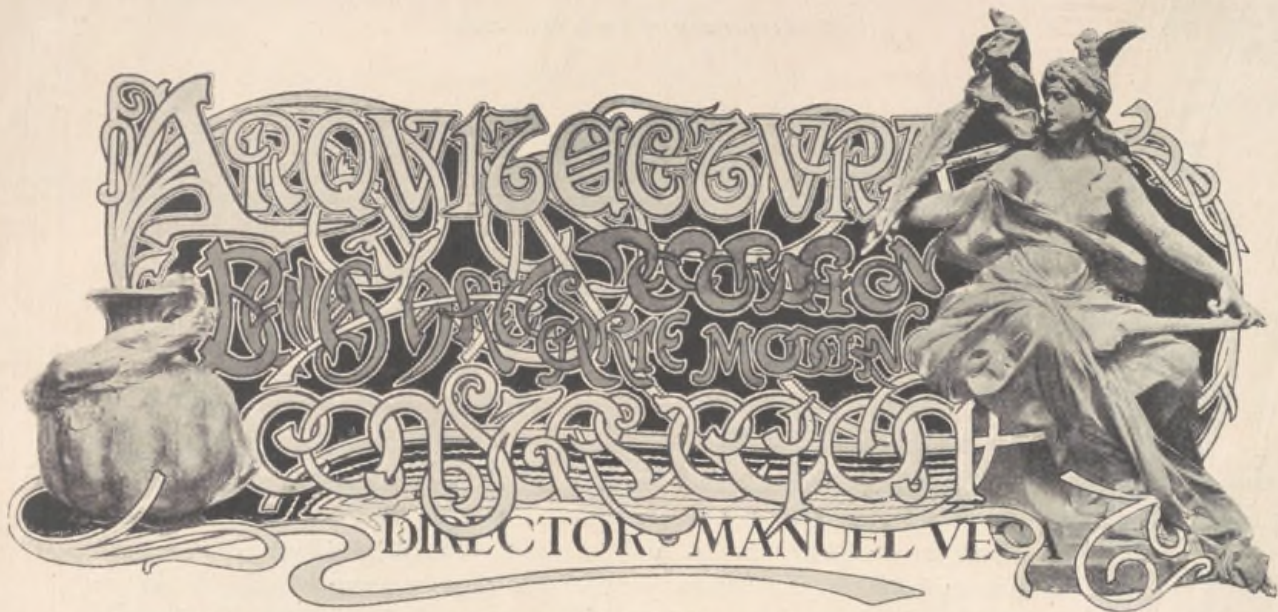 ARQVITECTVRA
BELLAS ARTES DECORACION
ARTE MODERNO
CONSTRUCCION
DIRECTOR MANUEL VEGA